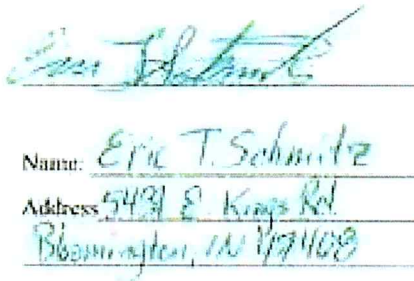 Name: Eric T. Schmitz
Address 5431 E. Kings Rd.
Bloomington, IN 47408